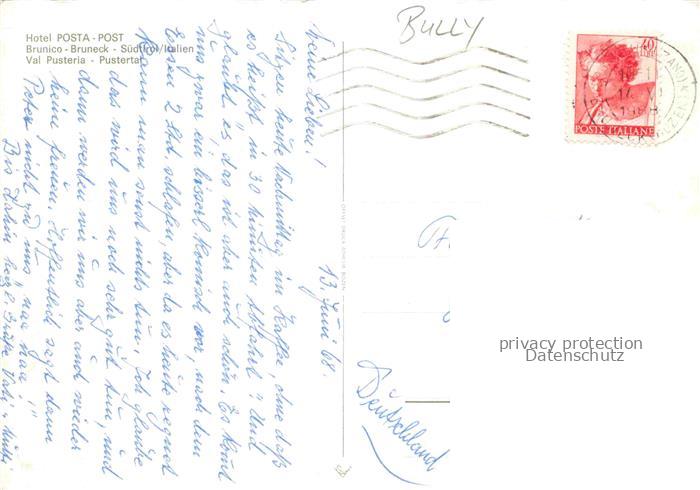 Hotel POSTA - POST
Brunico - Bruneck - Südtirol/Italien
Val Pusteria - Pustertal
BULLY
40
LIRE
POSTE ITALIANE
13. Juni 68.
Meine Lieben!
Sitzen heute Nachmittag im Kaffe, ohne daß
es heißt, in 30 Minuten Abfahrt. Und
glaubt es, das ist aber auch schön. Es kommt
uns zwar ein bisserl komisch vor, nach dem
Essen 2 Std. schlafen, aber da es heute regnet
kann man sonst nichts tun. Ich glaube
das wird uns noch sehr gut tun, und
dann werden wir uns aber auch wieder
heim freuen. Hoffentlich sagt dann
Peter nicht zu uns "naa naa"!
Bis dahin herzl. Grüße Vati &
Deutschland
privacy protection
Datenschutz